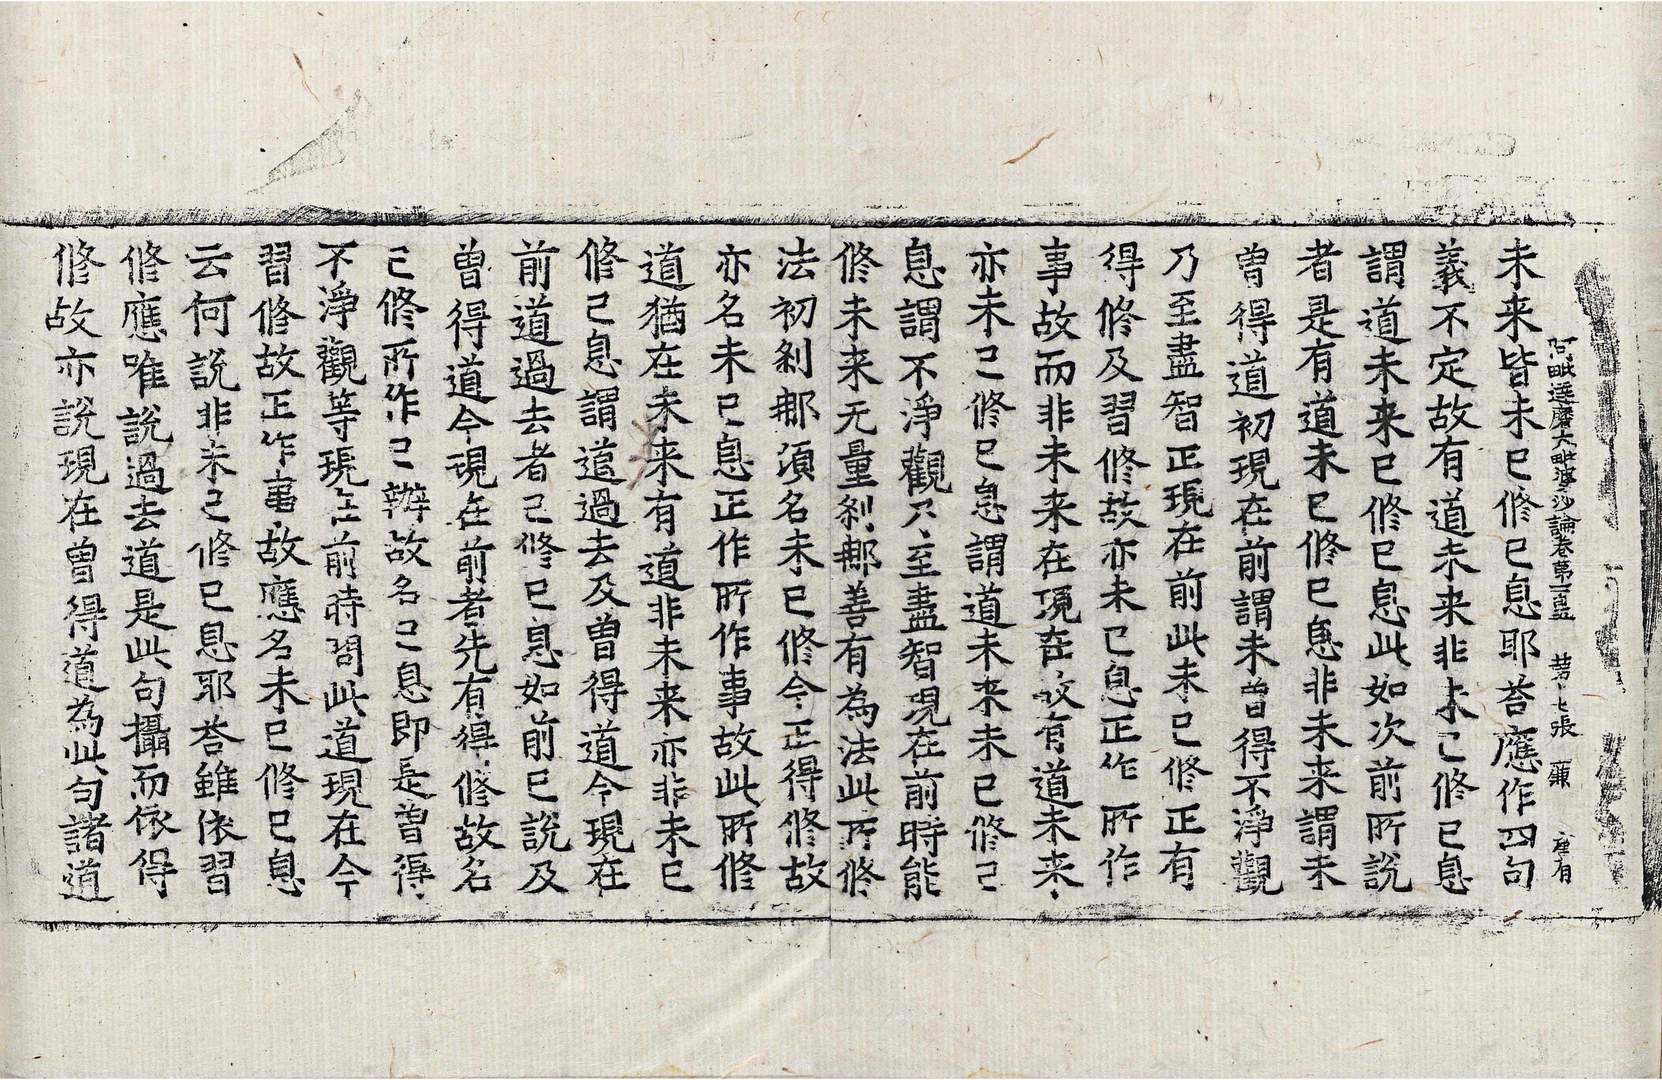 阿毗達磨大毗婆沙論卷第一百五 苐七張 廉 存有
未来皆未已修已息耶荅應作四句
義不定故有道未来非未已修已息
謂道未来已修已息此如次前所說
者是有道未已修已息非未来謂未
曾得道初現在前謂未曾得不淨觀
乃至盡智正現在前此未已修正有
得修及習修故亦未已息正作所作
事故而非未来在現在故有道未来
亦未已修已息謂道未来未已修已
息謂不淨觀乃至盡智現在前時能
修未来无量刹那善有為法此所修
法初刹那須名未已修今正得修故
亦名未已息正作所作事故此所修
道猶在未来有道非未来亦非未已
修已息謂道過去及曾得道今現在
前道過去者已修已息如前已說及
曾得道今現在前者先有得修故名
已修所作已辦故名已息即是曾得
不淨觀等現在前時問此道現在今
習修故正作事故應名未已修已息
云何說非未已修已息耶荅雖依習
修應唯說過去道是此句攝而依得
修故亦說現在曾得道為此句諸道